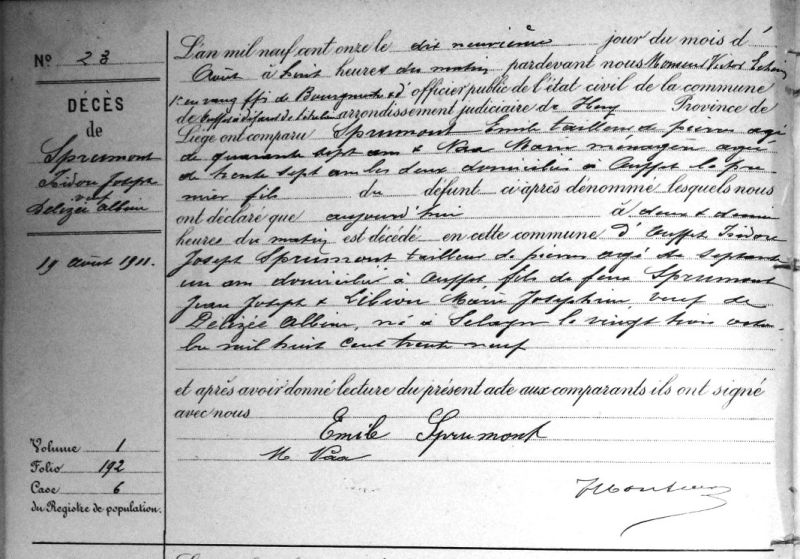 N° 23
DÉCÈS
de
Sprumont
Isidore Joseph
veuf
Delizée Albine
19 août 1911.
Volume 1
Folio 192
Case 6
du Registre de population.
L'an mil neuf cent onze le dix neuvième jour du mois d'
Août à huit heures du matin pardevant nous Monsieur Victor
en rang ffs de Bourgmestre d' officier public de l'état civil de la commune
de arrondissement judiciaire de Huy Province de
Liège ont comparu Sprumont Emile tailleur de pierres agé
de quarante sept ans & Nax Marie ménagère agée
de trente sept ans les deux domiciliés à Ouffet le pre
mier fils du défunt ci après dénommé lesquels nous
ont déclaré que aujourd'hui à deux & demie
heures du matin est décédé en cette commune d'Ouffet Isidore
Joseph Sprumont tailleur de pierres agé de septante
un ans domicilié à Ouffet, fils de feux Sprumont
Jean Joseph & Libion Marie Josephine veuf de
Delizée Albine, né à le vingt trois octo
bre mil huit cent trente neuf
et après avoir donné lecture du présent acte aux comparants ils ont signé
avec nous
Emile Sprumont
M Nax